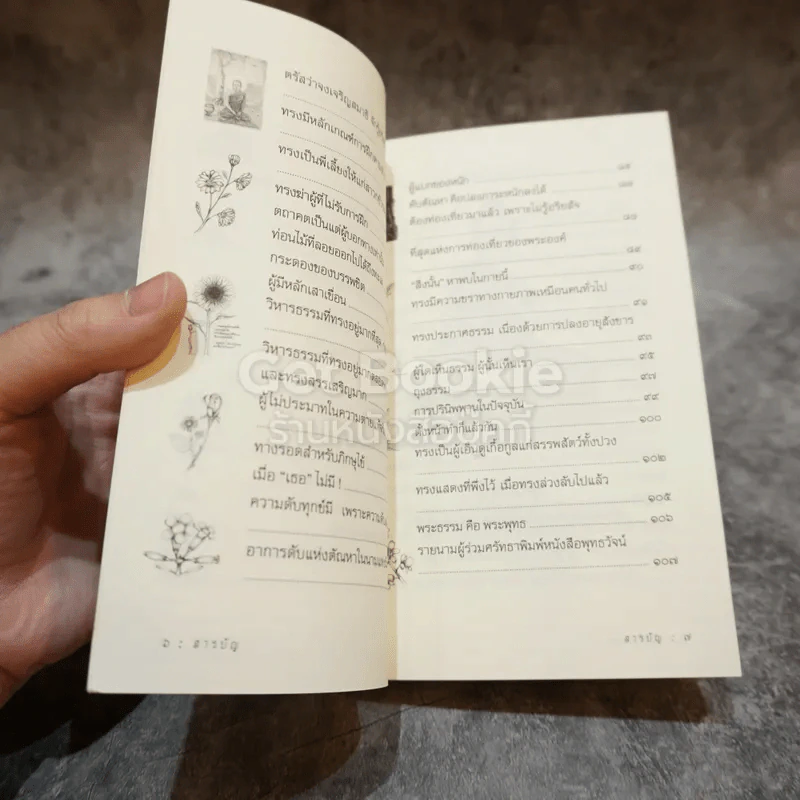 ตรัสว่าจงเจริญสมาธิ
ทรงมีหลักเกณฑ์การฝึก
ทรงเป็นพี่เลี้ยงให้แก่สาวก
ทรงฆ่าผู้ที่ไม่รับการฝึก
ตถาคตเป็นแต่ผู้บอกทางเท่านั้น
ท่อนไม้ที่ลอยออกไปได้ถึงทะเล
กระดองของบรรพชิต
ผู้มีหลักเสาเขื่อน
วิหารธรรมที่ทรงอยู่มากที่สุด
วิหารธรรมที่ทรงอยู่มาก
และทรงสรรเสริญมาก
ผู้ไม่ประมาทในความตาย
ทางรอดสำหรับภิกษุไข้
เมื่อ “เธอ” ไม่มี !
ความดับทุกข์มี เพราะความดับ
อาการดับแห่งตัณหาในนาม
๖ : สารบัญ
ผู้แบกของหนัก
ดับตัณหา คือปลงภาระหนักลงได้ ๘๗
ต้องท่องเที่ยวมาแล้ว เพราะไม่รู้อริยสัจ
๘๘
ที่สุดแห่งการท่องเที่ยวของพระองค์
๘๙
“สิ่งนั้น” หาพบในกายนี้ ๙๐
ทรงมีความชราทางกายภาพเหมือนคนทั่วไป
๙๑
ทรงประกาศธรรม เนื่องด้วยการปลงอายุสังขาร
๙๓
ผู้ใดเห็นธรรม ผู้นั้นเห็นเรา ๙๕
ถุงธรรม ๙๗
การปรินิพพานในปัจจุบัน ๙๙
ตั้งหน้าทำก็แล้วกัน ๑๐๐
ทรงเป็นผู้เอ็นดูเกื้อกูลแก่สรรพสัตว์ทั้งปวง
๑๐๒
ทรงแสดงที่พึ่งไว้ เมื่อทรงล่วงลับไปแล้ว
๑๐๕
พระธรรม คือ พระพุทธ ๑๐๖
รายนามผู้ร่วมศรัทธาพิมพ์หนังสือพุทธวัจน์
๑๐๗
สารบัญ : ๗
Get Bookie
ร้านหนังสือบุ๊คกี้